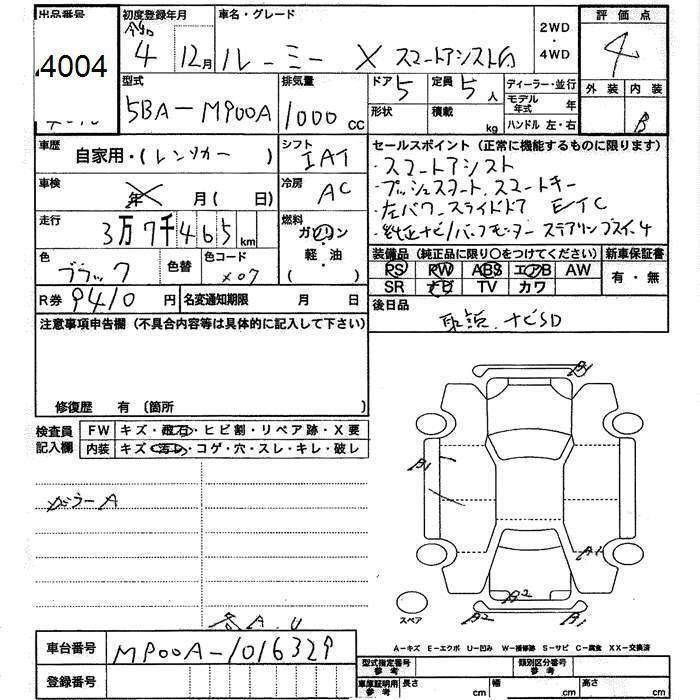 出品番号 初度登録年月 車名・グレード 2WD・4WD 評価点
4004 4 12月 ルーミー X スマートアシストG 4
型式 排気量 ドア 5 定員 5人 ディーラー・並行 外装 内装
5BA-M900A 1000 CC 形状 積載 kg モデル年式 年 B
ハンドル 左・右
車歴 自家用・(レンタカー) シフト IAT セールスポイント(正常に機能するものに限ります)
・スマートアシスト
車検 年 月(日) 冷房 AC ・プッシュスタート、スマートキー
・左パワースライドドア ETC
走行 3万7千465km 燃料 ガソリン・軽油 ( )
・純正ナビ/バックモニター ステアリングスイッチ
色 ブラック 色替 色コード X07 装備品(純正品に限り〇をつけてください) 新車保証書
PS PW ABS エアB AW 有・無
SR ナビ TV カワ
R券 9410円 名変通知期限 月 日 後日品
注意事項申告欄(不具合内容等は具体的に記入して下さい) 取説、ナビSD
修復歴 有 〔箇所 〕
検査員記入欄 FW キズ・飛石・ヒビ割・リペア跡・X要
内装 キズ・汚レ・コゲ・穴・スレ・キレ・破レ
A1
B1
ガラーA
A1
B2
B2 B1
スペア
各A.U
A-キズ E-エクボ U-凹み W-補修跡 S-サビ C-腐食 XX-交換済
車台番号 M900A-1016329 型式指定番号 参考 類別区分番号 参考
登録番号 車庫証明用 参考 長さ cm 幅 cm 高さ cm